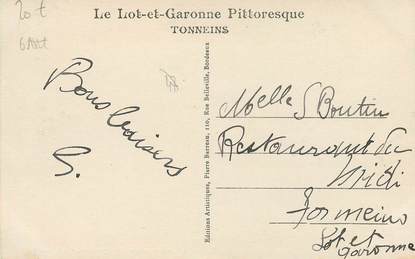 Le Lot-et-Garonne Pittoresque
TONNEINS
20 t
Bons baisers
S.
Editions Artistiques, Pierre Berreau, 110, Rue Belleville, Bordeaux
Melle S Boutin
Restaurant du
Midi
Tonneins
Lot et
Garonne